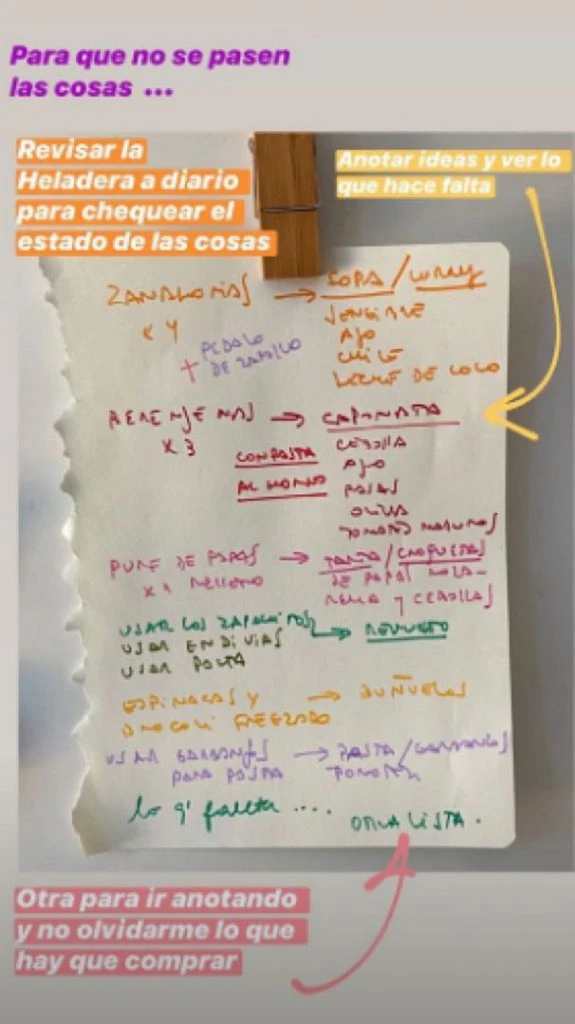 Para que no se pasen
las cosas ...
Revisar la
Heladera a diario
para chequear el
estado de las cosas
Anotar ideas y ver lo
que hace falta
ZANAHORIAS → SOPA / CURRY
x 4
+ PEDAZO
DE ZAPALLO
JENGIBRE
AJO
CHILE
LECHE DE COCO
BERENJENAS → CAPONATA
x 3
CON PASTA
AL HORNO
CEBOLLA
AJO
PASAS
OLIVA
TOMATES MADUROS
PURE DE PAPAS → TARTA / CROQUETAS
x 1 RELLENO
DE PAPAS MOZA-
RELLA Y CEBOLLAS
USAR LOS ZAPALLITOS → REVUELTO
USAR ENDIVIAS
USAR PALTA
ESPINACAS Y → BUÑUELOS
BROCOLI FREEZADO
USAR GARBANZOS → PASTA / GARBANZOS
PARA PASTA
lo q' falta ....
OTRA LISTA.
Otra para ir anotando
y no olvidarme lo que
hay que comprar